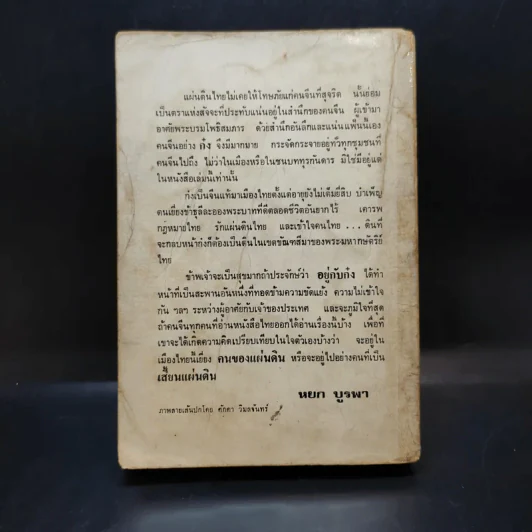 แผ่นดินไทยไม่เคยให้โทษภัยแก่คนจีนที่สุจริต นั่นย่อม
เป็นตราแห่งสัจจะที่ประทับแน่นอยู่ในสำนึกของคนจีน ผู้เข้ามา
อาศัยพระบรมโพธิสมภาร ด้วยสำนึกอันลึกและแน่นแฟ้นนี้เอง
คนจีนอย่าง ก๋ง จึงมีมากมาย กระจัดกระจายอยู่ทั่วทุกชุมชนที่
คนจีนไปถึง ไม่ว่าในเมืองหรือในชนบททุรกันดาร มิใช่มีอยู่แต่
ในหนังสือเล่มนี้เท่านั้น
ก๋งเป็นจีนแท้มาเมืองไทยตั้งแต่อายุยังไม่เต็มยี่สิบ บำเพ็ญ
ตนเยี่ยงข้าธุลีละอองพระบาทที่ดีตลอดชีวิตอันยากไร้ เคารพ
กฎหมายไทย รักแผ่นดินไทย และเข้าใจคนไทย ... ดินที่
จะกลบหน้าก๋งก็ต้องเป็นดินในเขตขัณฑสีมาของพระมหากษัตริย์
ไทย
ข้าพเจ้าจะเป็นสุขมากถ้าประจักษ์ว่า อยู่กับก๋ง ได้ทำ
หน้าที่เป็นสะพานอันหนึ่งที่ทอดข้ามความขัดแย้ง ความไม่เข้าใจ
กัน ฯลฯ ระหว่างผู้อาศัยกับเจ้าของประเทศ และจะภูมิใจที่สุด
ถ้าคนจีนทุกคนที่อ่านหนังสือไทยออกได้อ่านเรื่องนี้บ้าง เพื่อที่
เขาจะได้เกิดความคิดเปรียบเทียบในใจตัวเองบ้างว่า จะอยู่ใน
เมืองไทยนี้เยี่ยง คนของแผ่นดิน หรือจะอยู่ไปอย่างคนที่เป็น
เสี้ยนแผ่นดิน
หยก บูรพา
ภาพลายเส้นปกโดย ศักดา วิมลจันทร์